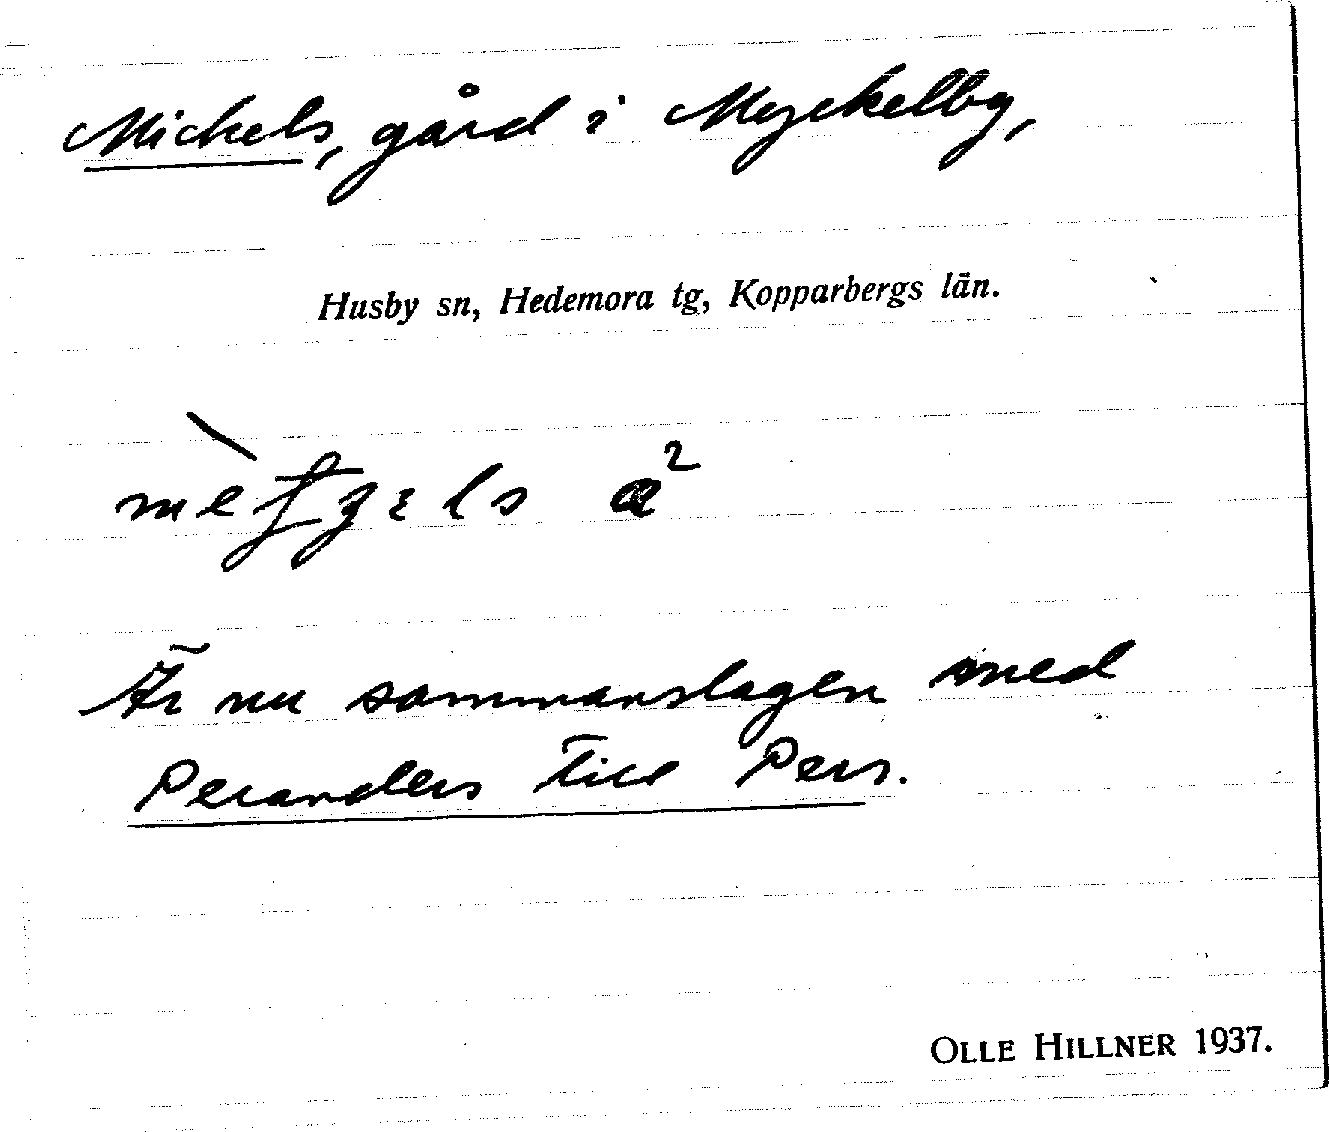 Michels, gård i Myckelby,
Husby sn, Hedemora tg, Kopparbergs län.
a²
Är nu sammanslagen med
Peranders till Pers.
OLLE HILLNER 1937.